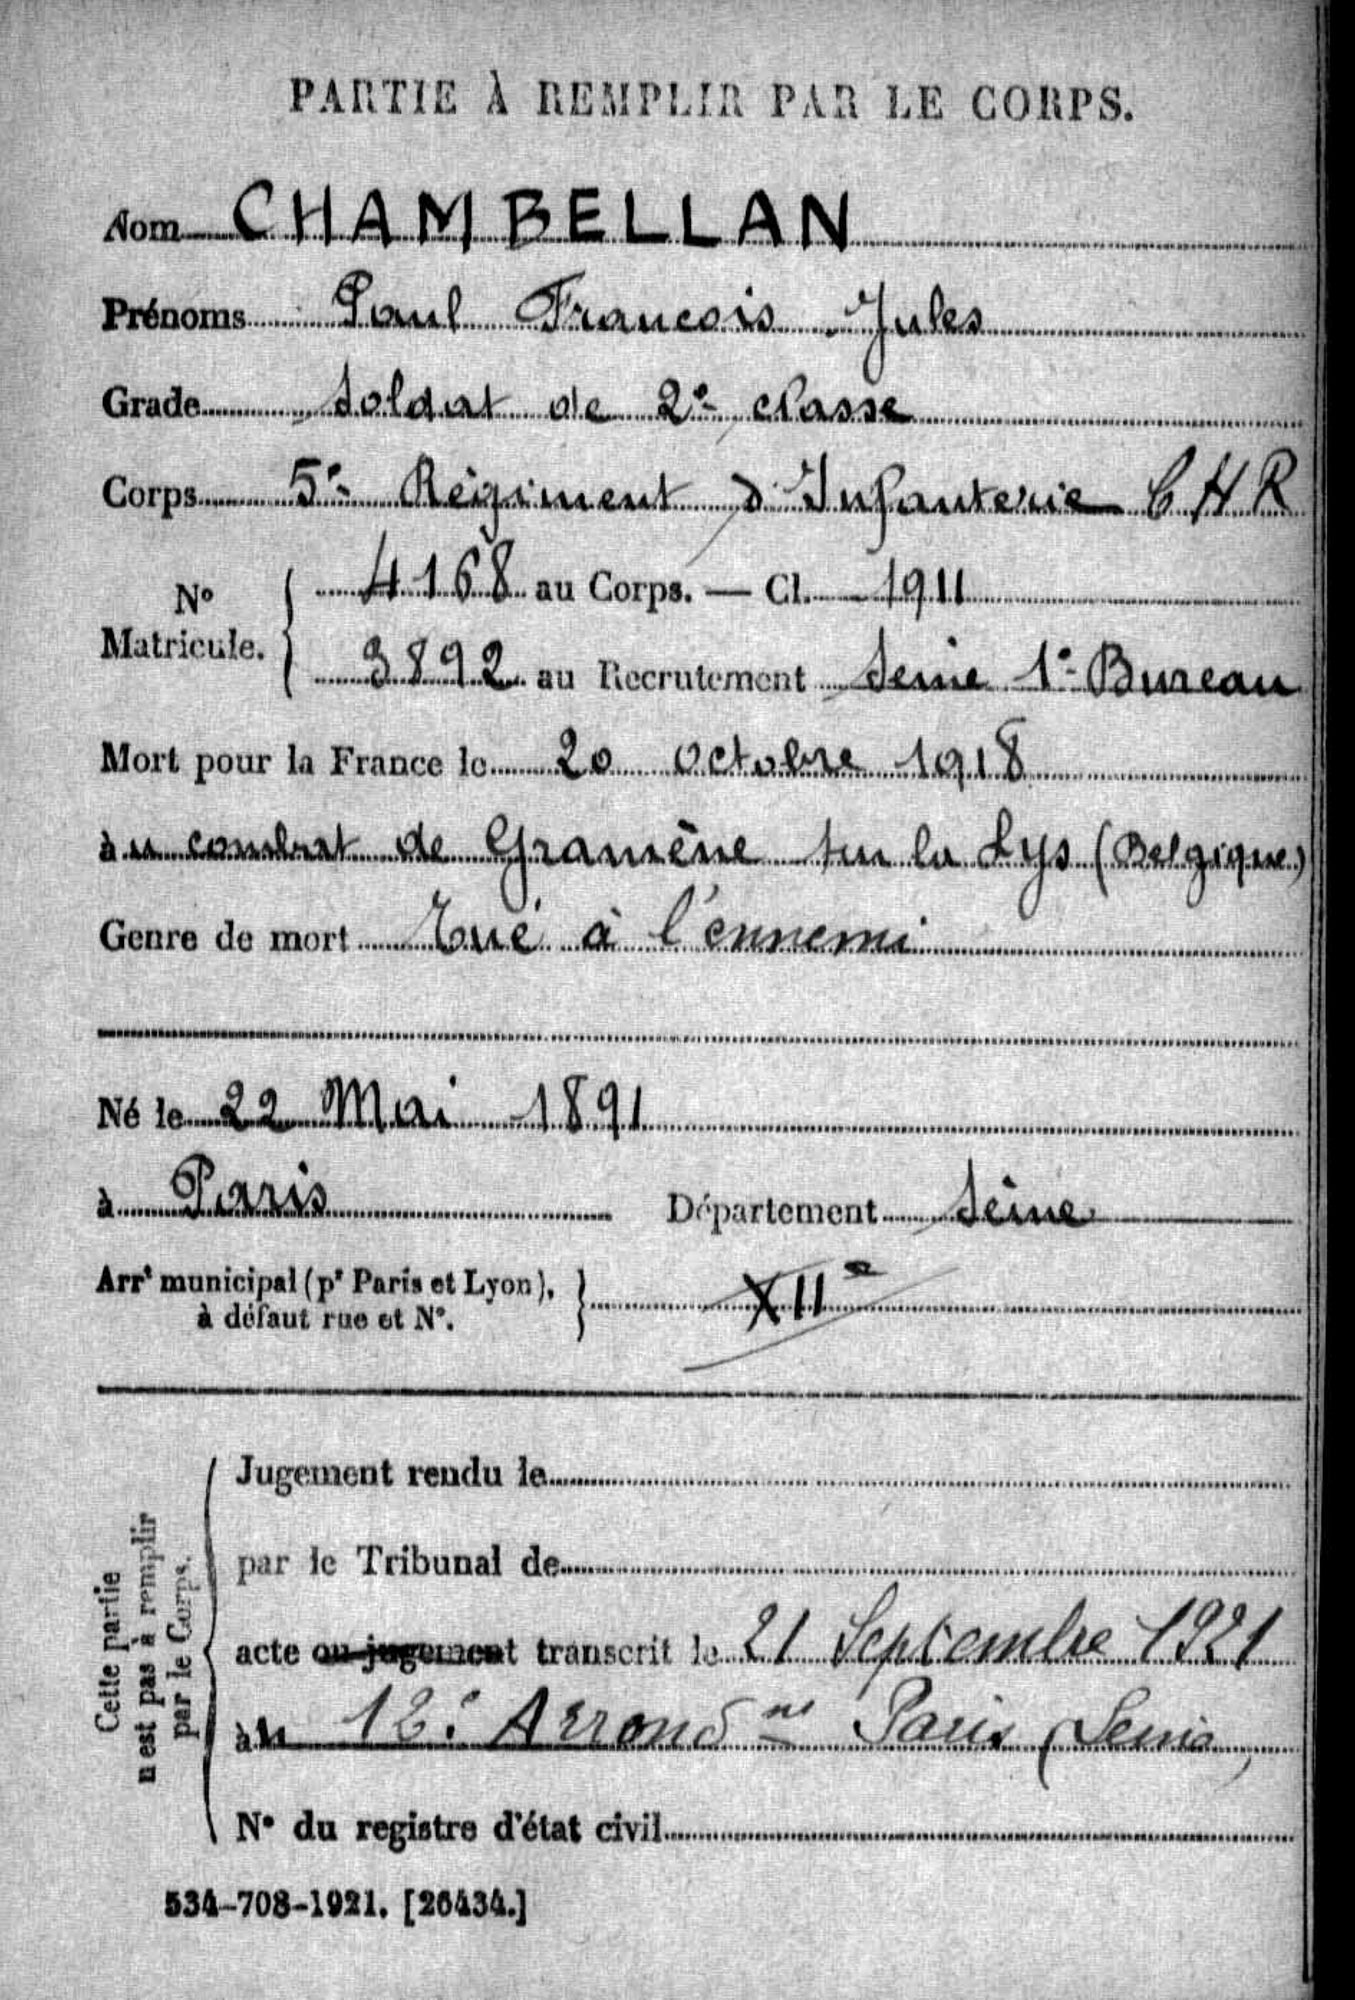 PARTIE À REMPLIR PAR LE CORPS.
Nom CHAMBELLAN
Prénoms Paul Francois Jules
Grade Soldat de 2e classe
Corps 5e Régiment d'Infanterie C H R
No Matricule. { 4168 au Corps. — Cl. 1911
3892 au Recrutement Seine 1er Bureau
Mort pour la France le 20 octobre 1918
àu combat de Gramène sur la Lys (Belgique)
Genre de mort Tué à l'ennemi
Né le 22 Mai 1891
à Paris Département Seine
Arrt municipal (pr Paris et Lyon), } XIIe
à défaut rue et No.
Cette partie
n'est pas à remplir
par le Corps.
Jugement rendu le
par le Tribunal de
acte ou jugement transcrit le 21 Septembre 1921
àu 12e Arrondnt Paris (Seine)
No du registre d'état civil
534-708-1921. [26434.]